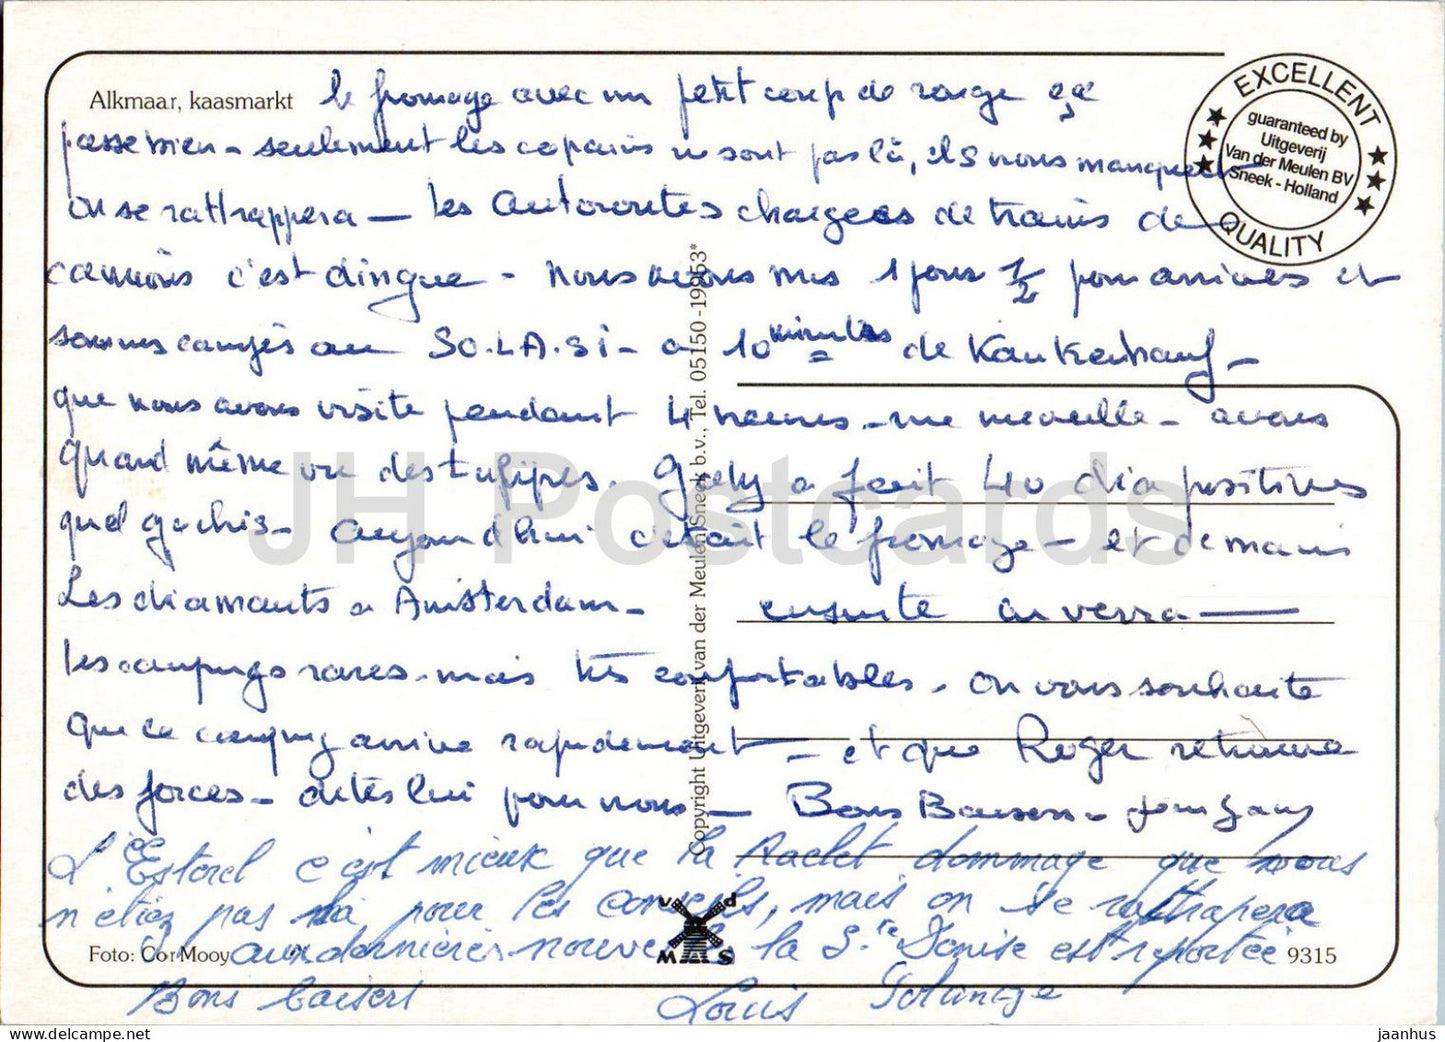 Alkmaar, kaasmarkt
le fromage avec un petit coup de rouge ça
passe bien - seulement les copains ne sont pas là, ils nous manquent
on se rattrappera - les Autoroutes chargées de trains de
camions c'est dingue - nous avons mis 1 jour 1/2 pour arriver et
sommes campés au SO.LA.Si - a 10 minutes de Kaukenhauf -
que nous avons visité pendant 4 heures - une merveille - avons
quand même vu des tulipes. Gaby a fait 40 diapositives
quel gachis - aujourd'hui c'était le fromage - et demain
Les diamants a Amsterdam - ensuite on verra -
les campings rares - mais très confortables. on vous souhaite
que le camping arrive rapidement - et que Roger retrouve
des forces - dites lui pour nous - Bons Baisers -
L'Esterel c'est mieux que la dommage que vous
n'étiez pas là pour les conseils, mais on se rattrapera
aux dernières nouvelles la Ste Denise est reportée
Bons baisers Louis Solange
EXCELLENT
guaranteed by
Uitgeverij
Van der Meulen BV
Sneek - Holland
QUALITY
Copyright Uitgeverij van der Meulen Sneek b.v., Tel. 05150 -19963*
Foto: Cor Mooy
v d
M S
9315
JH Postcards
jaanhus